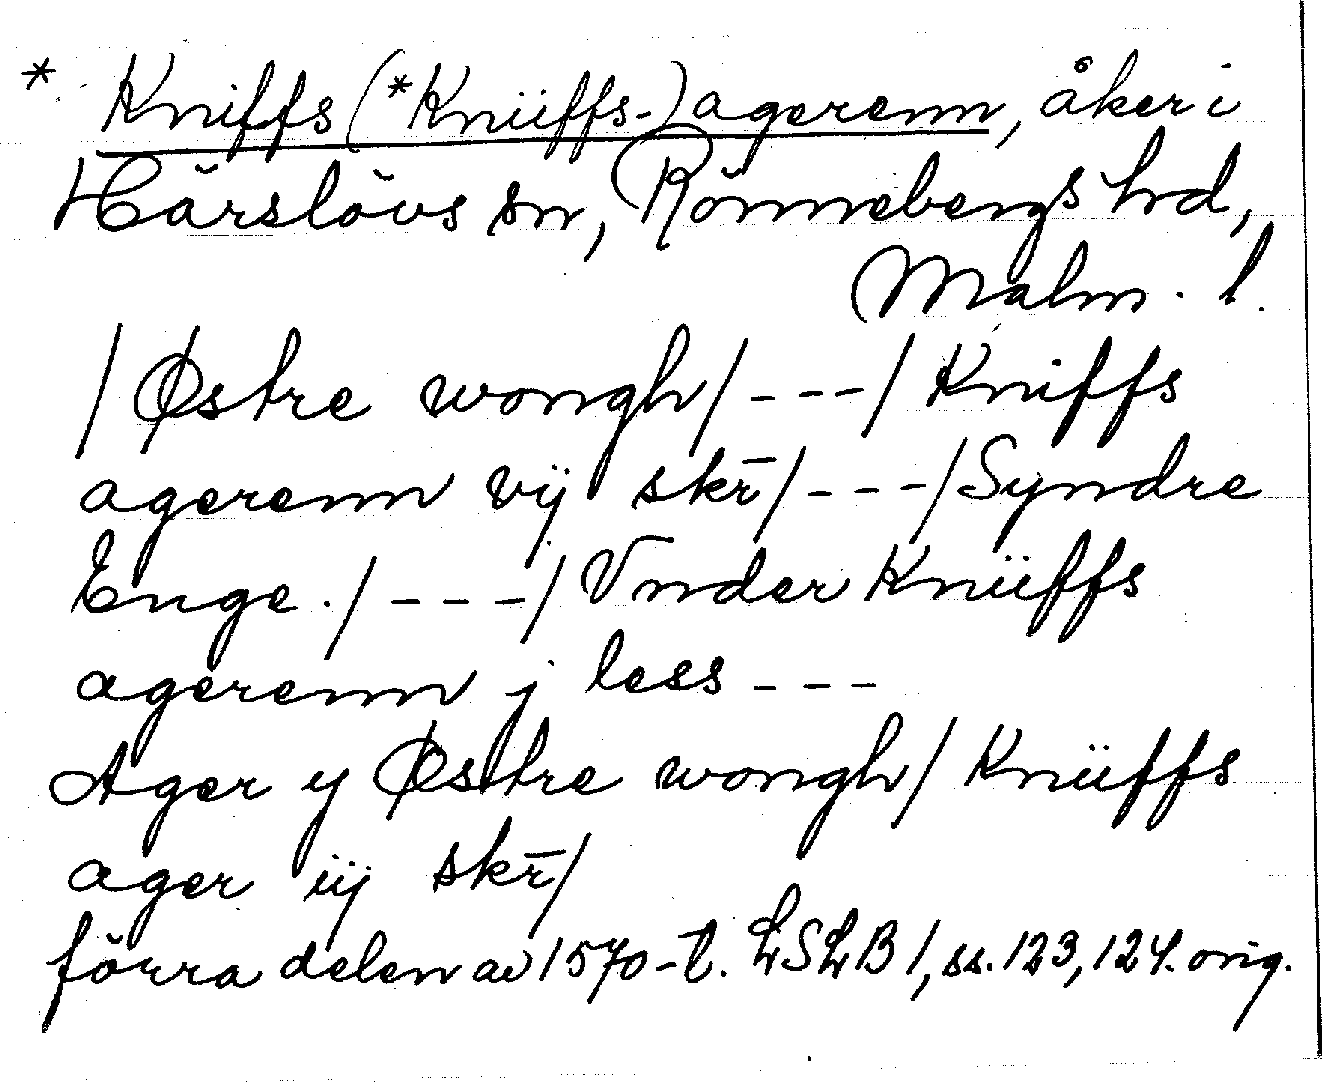 * Kniffs(*Knüffs-)agerenn, åker i
Härslövs sn, Rönnebergs hd,
Malm. l.
/Østre wongh/---/Kniffs
agerenn vij skr̄/---/Syndre
Enge./---/Vnder Knüffs
agerenn j less ---
Ager y Østre wongh/Knüffs
ager iij skr̄/
förra delen av 1570-t. LSLB 1, ss. 123, 124. orig.